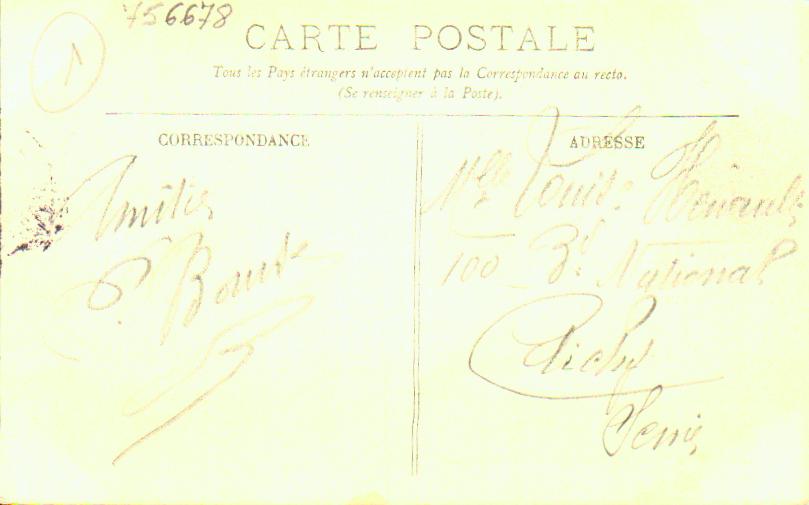 756678
1
CARTE POSTALE
Tous les Pays étrangers n'acceptent pas la Correspondance au recto.
(Se renseigner à la Poste).
CORRESPONDANCE
ADRESSE
Amitiés
Mlle Louise
100 Bd National
Clichy
Seine